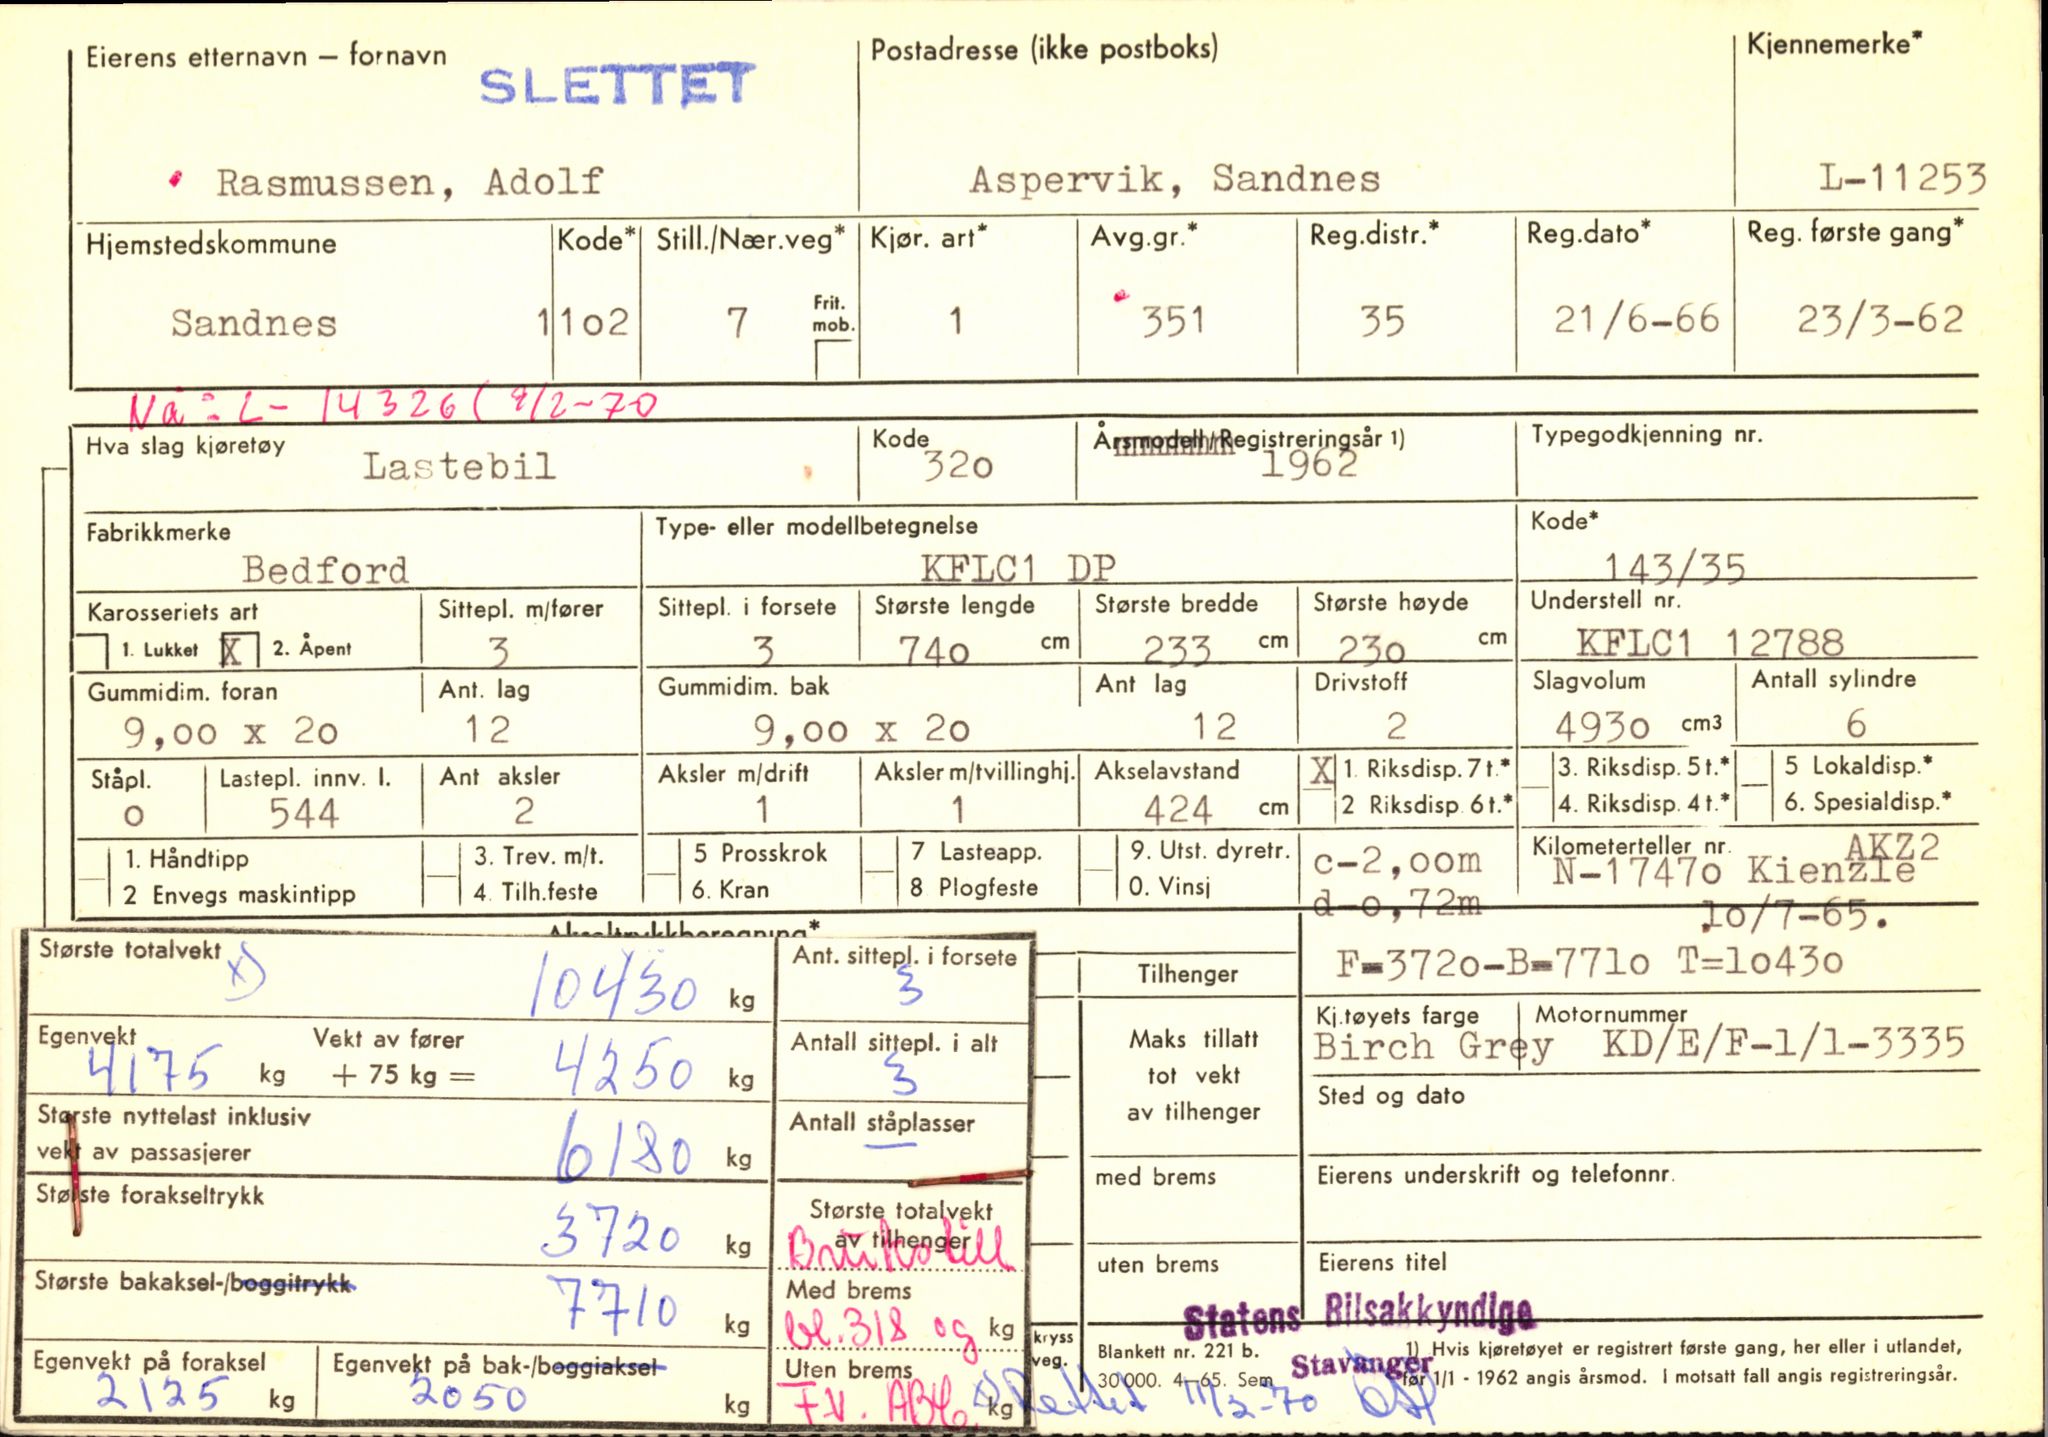 Eierens etternavn – fornavn
SLETTET
Postadresse (ikke postboks)
Kjennemerke*
Rasmussen, Adolf
Aspervik, Sandnes
L-11253
Hjemstedskommune
Kode*
Still./Nær.veg*
Kjør. art*
Avg.gr.*
Reg.distr.*
Reg.dato*
Reg. første gang*
Sandnes
11o2
7
Frit. mob.
1
351
35
21/6-66
23/3-62
Nå: L- 14326 ( 9/2-70
Hva slag kjøretøy
Lastebil
Kode
32o
Årsmodell/Registreringsår 1)
1962
Typegodkjenning nr.
Fabrikkmerke
Bedford
Type- eller modellbetegnelse
KFLC1 DP
Kode*
143/35
Karosseriets art
1. Lukket X 2. Åpent
Sittepl. m/fører
3
Sittepl. i forsete
3
Største lengde
74o cm
Største bredde
233 cm
Største høyde
23o cm
Understell nr.
KFLC1 12788
Gummidim. foran
9,oo x 2o
Ant. lag
12
Gummidim. bak
9,oo x 2o
Ant lag
12
Drivstoff
2
Slagvolum
493o cm3
Antall sylindre
6
Ståpl.
o
Lastepl. innv. l.
544
Ant aksler
2
Aksler m/drift
1
Aksler m/tvillinghj.
1
Akselavstand
424 cm
X 1. Riksdisp. 7 t.*
2 Riksdisp. 6 t.*
3. Riksdisp. 5 t.*
4. Riksdisp. 4 t.*
5 Lokaldisp.*
6. Spesialdisp.*
1. Håndtipp
2 Envegs maskintipp
3. Trev. m/t.
4. Tilh.feste
5 Prosskrok
6. Kran
7 Lasteapp.
8 Plogfeste
9. Utst. dyretr.
0. Vinsj
c-2,oom
d-o,72m
Kilometerteller nr.
AKZ2
N-1747o Kienzle
1o/7-65.
Akseltrykkberegning*
F=372o-B=771o T=1o43o
Største totalvekt x)
10430 kg
Ant. sittepl. i forsete
3
Tilhenger
Egenvekt
4175 kg
Vekt av fører
+ 75 kg =
4250 kg
Antall sittepl. i alt
3
Maks tillatt
tot vekt
av tilhenger
Kj.tøyets farge
Birch Grey
Motornummer
KD/E/F-1/1-3335
Sted og dato
Største nyttelast inklusiv
vekt av passasjerer
6180 kg
Antall ståplasser
—
med brems
Eierens underskrift og telefonnr.
Største forakseltrykk
3720 kg
Største totalvekt
av tilhenger
uten brems
Eierens titel
Største bakaksel-/boggitrykk
7710 kg
Med brems
bl. 318 og kg
Statens Bilsakkyndige
Stavanger
Egenvekt på foraksel
2125 kg
Egenvekt på bak-/boggiaksel
2050 kg
Uten brems
kg
kryss
veg.
Blankett nr. 221 b.
30000. 4–65. Sem
1) Hvis kjøretøyet er registrert første gang, her eller i utlandet,
før 1/1 - 1962 angis årsmod. I motsatt fall angis registreringsår.
x) Rettet 11/2-70